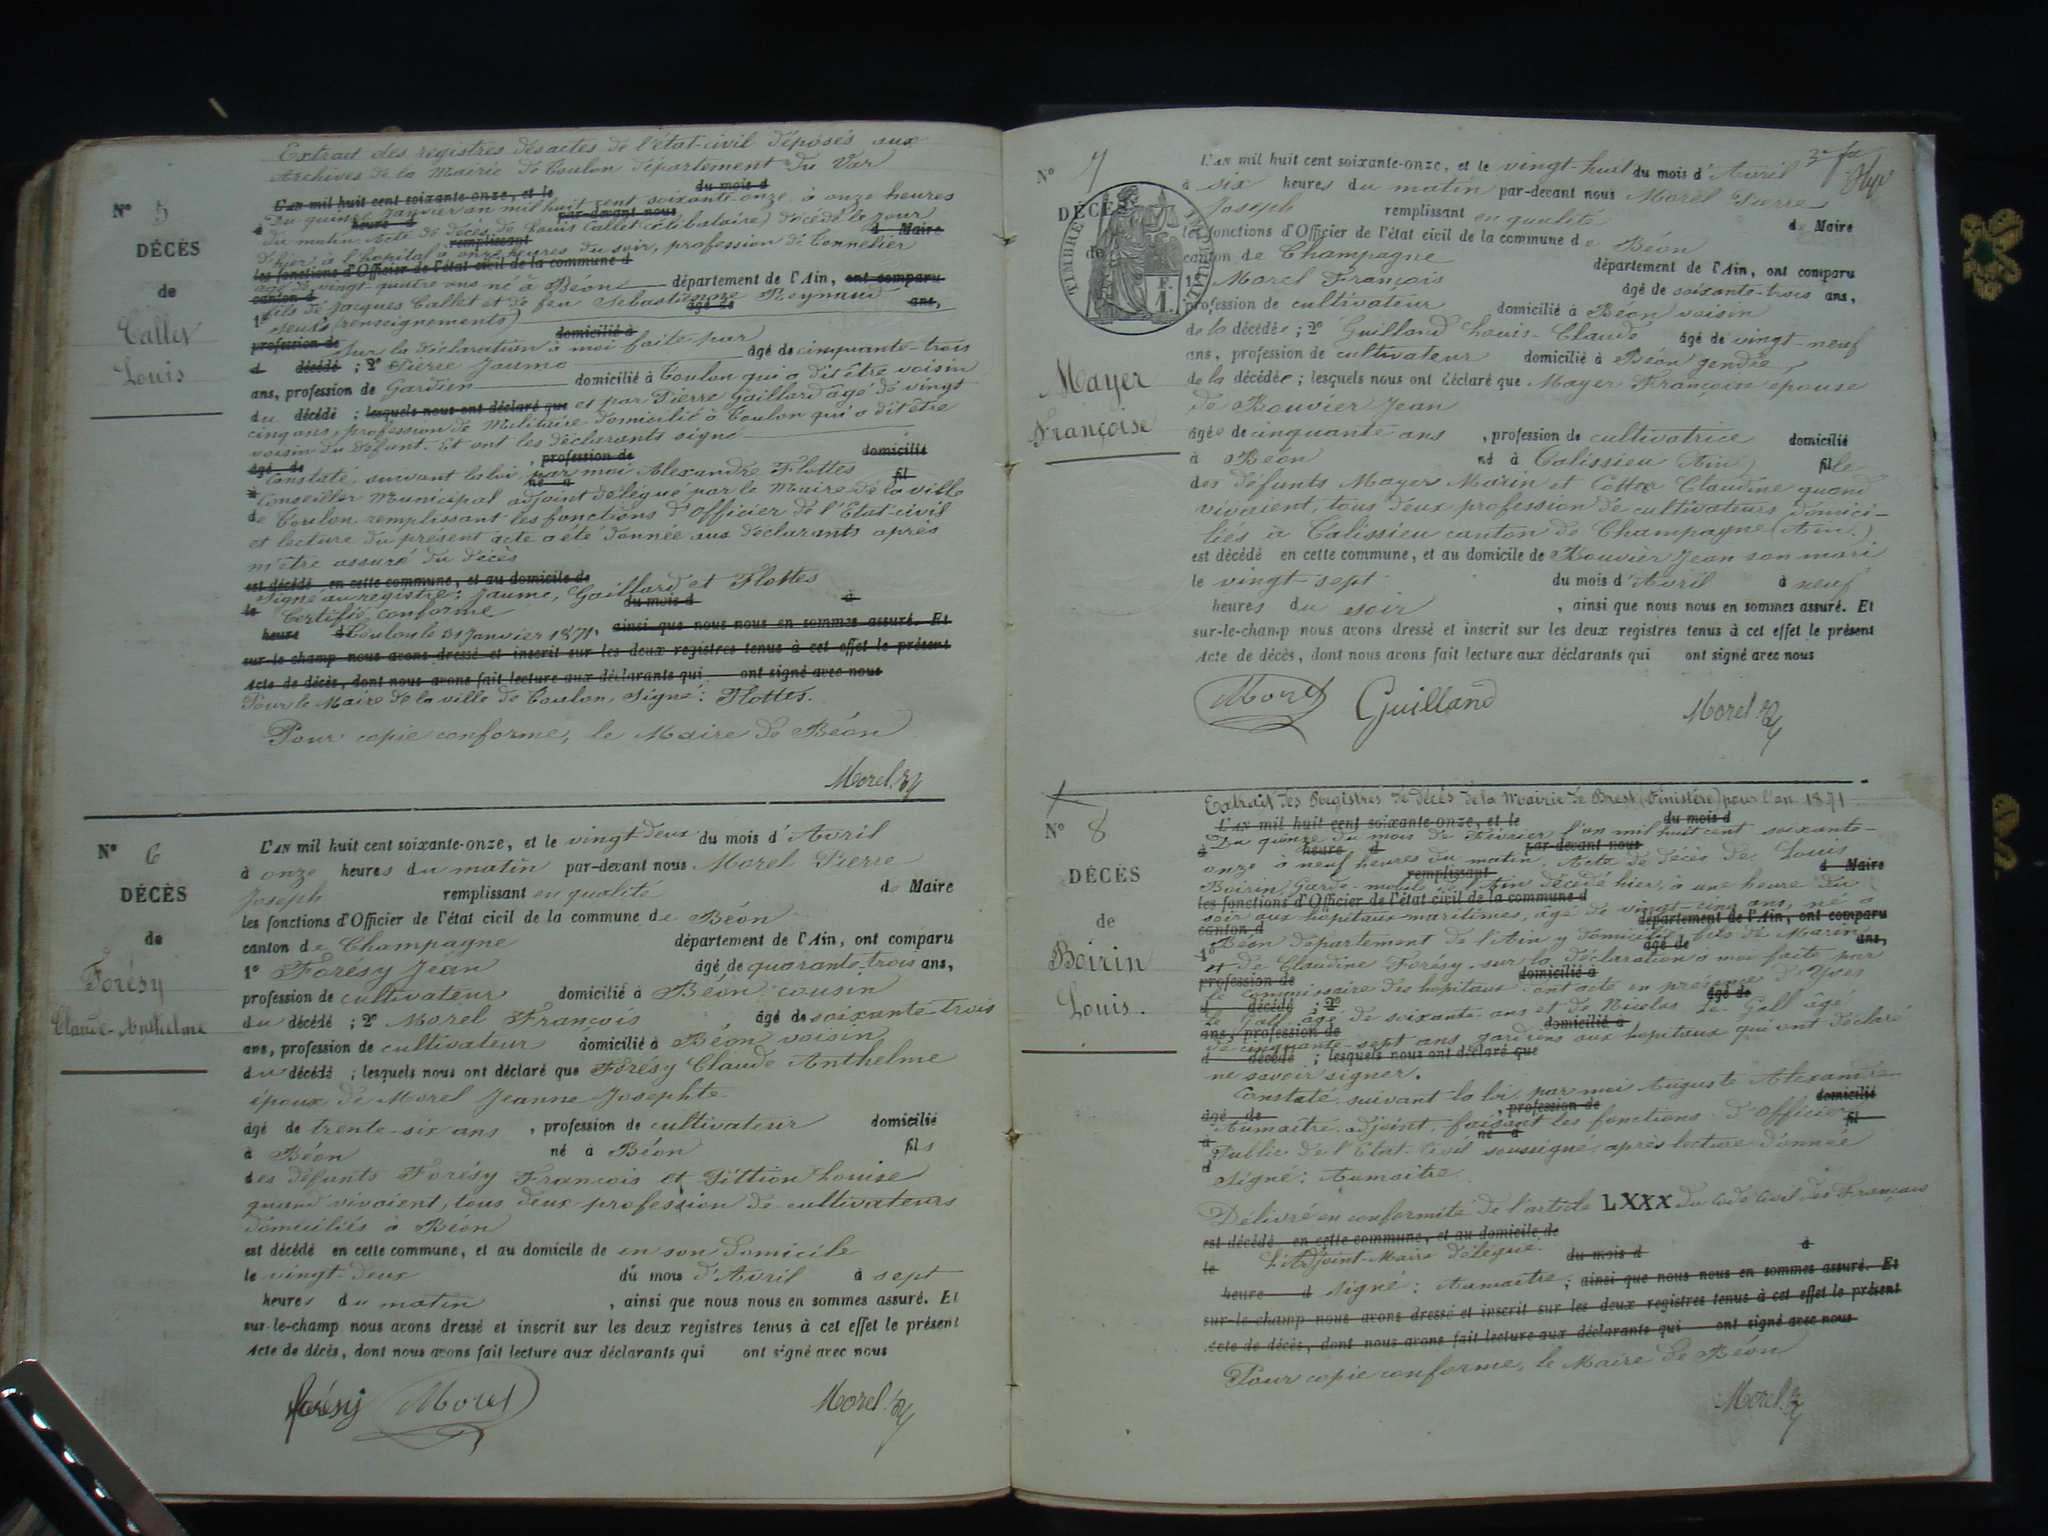 Extrait des registres des actes de l'état-civil déposés aux
Archives de la Mairie de Toulon département du Var
L'AN mil huit cent soixante-onze, et le du mois d
Du quinze Janvier an mil huit cent soixante-onze à onze heures
à heure d par-devant nous
du matin. Acte de décès de Louis Callet (célibataire) décédé le jour
remplissant d Maire
d'hier à l'hopital à onze heures du soir, profession de Tonnelier
les fonctions d'Officier de l'état civil de la commune d
âgé de vingt-quatre ans né à Béon département de l'Ain, ont comparu
canton d
fils de Jacques Callet et de feu Sébastienne Reynaud
1° âgé de ans,
(renseignements)
profession de domicilié à
Sur la déclaration à moi faite par
d décédé ; 2° Pierre Jaume âgé de cinquante-trois
ans, profession de Gardien domicilié à Toulon qui a dit être voisin
du décédé ; lesquels nous ont déclaré que et par Pierre Gaillard âgé de vingt
cinq ans, profession de Militaire domicilié à Toulon qui a dit être
voisin du défunt. Et ont les déclarants signé
âgé de , profession de domicilié
Constaté, suivant la loi, par moi Alexandre Flottes
à né à fil
Conseiller Municipal adjoint délégué par le Maire de la ville
de Toulon remplissant les fonctions d'Officier de l'Etat-civil
et lecture du présent acte a été donnée aux déclarants après
m'être assuré du décès
est décédé en cette commune, et au domicile de
Signé au registre : Jaume, Gaillard et Flottes
le du mois d à
Certifié conforme
heure d Toulon le 31 Janvier 1871. ainsi que nous nous en sommes assuré. Et
sur-le-champ nous avons dressé et inscrit sur les deux registres tenus à cet effet le présent
Acte de décès, dont nous avons fait lecture aux déclarants qui ont signé avec nous
Pour le Maire de la ville de Toulon, Signé : Flottes.
Pour copie conforme, le Maire de Béon
Morel
N° 5
DÉCÈS
de
Callet
Louis
N° 6
DÉCÈS
de
Forésy
Claude-Anthelme
L'AN mil huit cent soixante-onze, et le vingt-deux du mois d'Avril
à onze heures du matin par-devant nous Morel Pierre
Joseph remplissant en qualité de Maire
les fonctions d'Officier de l'état civil de la commune de Béon
canton de Champagne département de l'Ain, ont comparu
1° Forésy Jean âgé de quarante-trois ans,
profession de cultivateur domicilié à Béon cousin
du décédé ; 2° Morel François âgé de soixante-trois
ans, profession de cultivateur domicilié à Béon voisin
du décédé ; lesquels nous ont déclaré que Forésy Claude Anthelme
époux de Morel Jeanne Josephte
âgé de trente-six ans , profession de cultivateur domicilié
à Béon né à Béon fils
des défunts Forésy François et Pittion Louise
quand vivaient, tous deux profession de cultivateurs
domiciliés à Béon
est décédé en cette commune, et au domicile de en son domicile
le vingt-deux du mois d'Avril à sept
heures du matin , ainsi que nous nous en sommes assuré. Et
sur-le-champ nous avons dressé et inscrit sur les deux registres tenus à cet effet le présent
Acte de décès, dont nous avons fait lecture aux déclarants qui ont signé avec nous
Forésy Morel Morel
N° 7
DÉCÈS
de
TIMBRE IMPÉRIAL
F.
1.
Mayer
Françoise
L'AN mil huit cent soixante-onze, et le vingt-huit du mois d'Avril
à six heures du matin par-devant nous Morel Pierre
Joseph remplissant en qualité de Maire
les fonctions d'Officier de l'état civil de la commune de Béon
canton de Champagne département de l'Ain, ont comparu
1° Morel François âgé de soixante-trois ans,
profession de cultivateur domicilié à Béon voisin
de la décédée ; 2° Guilland Louis-Claude âgé de vingt-neuf
ans, profession de cultivateur domicilié à Béon gendre
de la décédée ; lesquels nous ont déclaré que Mayer Françoise épouse
de Bouvier Jean
âgée de cinquante ans , profession de cultivatrice domicilié
à Béon né à Talissieu (Ain) fille
des défunts Mayer Marin et Cottex Claudine quand
vivaient, tous deux profession de cultivateurs domici-
liés à Talissieu canton de Champagne (Ain.)
est décédé en cette commune, et au domicile de Bouvier Jean son mari
le vingt-sept du mois d'Avril à neuf
heures du soir , ainsi que nous nous en sommes assuré. Et
sur-le-champ nous avons dressé et inscrit sur les deux registres tenus à cet effet le présent
Acte de décès, dont nous avons fait lecture aux déclarants qui ont signé avec nous
Morel Guilland Morel
N° 8
DÉCÈS
de
Boirin
Louis.
Extrait des Registres de décès de la Mairie de Brest (Finistère) pour l'an 1871
L'AN mil huit cent soixante-onze, et le du mois d
Du quinze du mois de Février l'an mil huit cent soixante-
à heure d par-devant nous
onze à neuf heures du matin. Acte de décès de Louis
remplissant d Maire
Boirin, Garde-mobile de l'Ain décédé hier, à une heure du
les fonctions d'Officier de l'état civil de la commune d
soir aux hopitaux maritimes, âgé de vingt-cinq ans, né à
canton d département de l'Ain, ont comparu
Béon département de l'Ain y domicilié, fils de Marin
1° âgé de ans,
et de Claudine Forésy. sur la déclaration à moi faite par
profession de domicilié à
le commissaire des hopitaux ont acté en présence d'Yves
d décédé ; 2° âgé de
Le Gall âgé de soixante ans et de Nicolas Le Gall âgé
ans, profession de domicilié à
de cinquante-sept ans, gardiens aux hopitaux qui ont déclaré
d décédé ; lesquels nous ont déclaré que
ne savoir signer.
Constaté, suivant la loi, par moi Auguste Alexandre
âgé de , profession de domicilié
Aumaître adjoint, faisant les fonctions d'Officier
à né à fil
Public de l'Etat-Civil soussigné, après lecture donnée
d
signé : Aumaitre.
Délivré en conformité de l'article LXXX du Code Civil des Français
est décédé en cette commune, et au domicile de
L'Adjoint-Maire délégué.
le du mois d à
heure d signé : Aumaitre ; ainsi que nous nous en sommes assuré. Et
sur-le-champ nous avons dressé et inscrit sur les deux registres tenus à cet effet le présent
Acte de décès, dont nous avons fait lecture aux déclarants qui ont signé avec nous
Pour copie conforme, le Maire de Béon
Morel